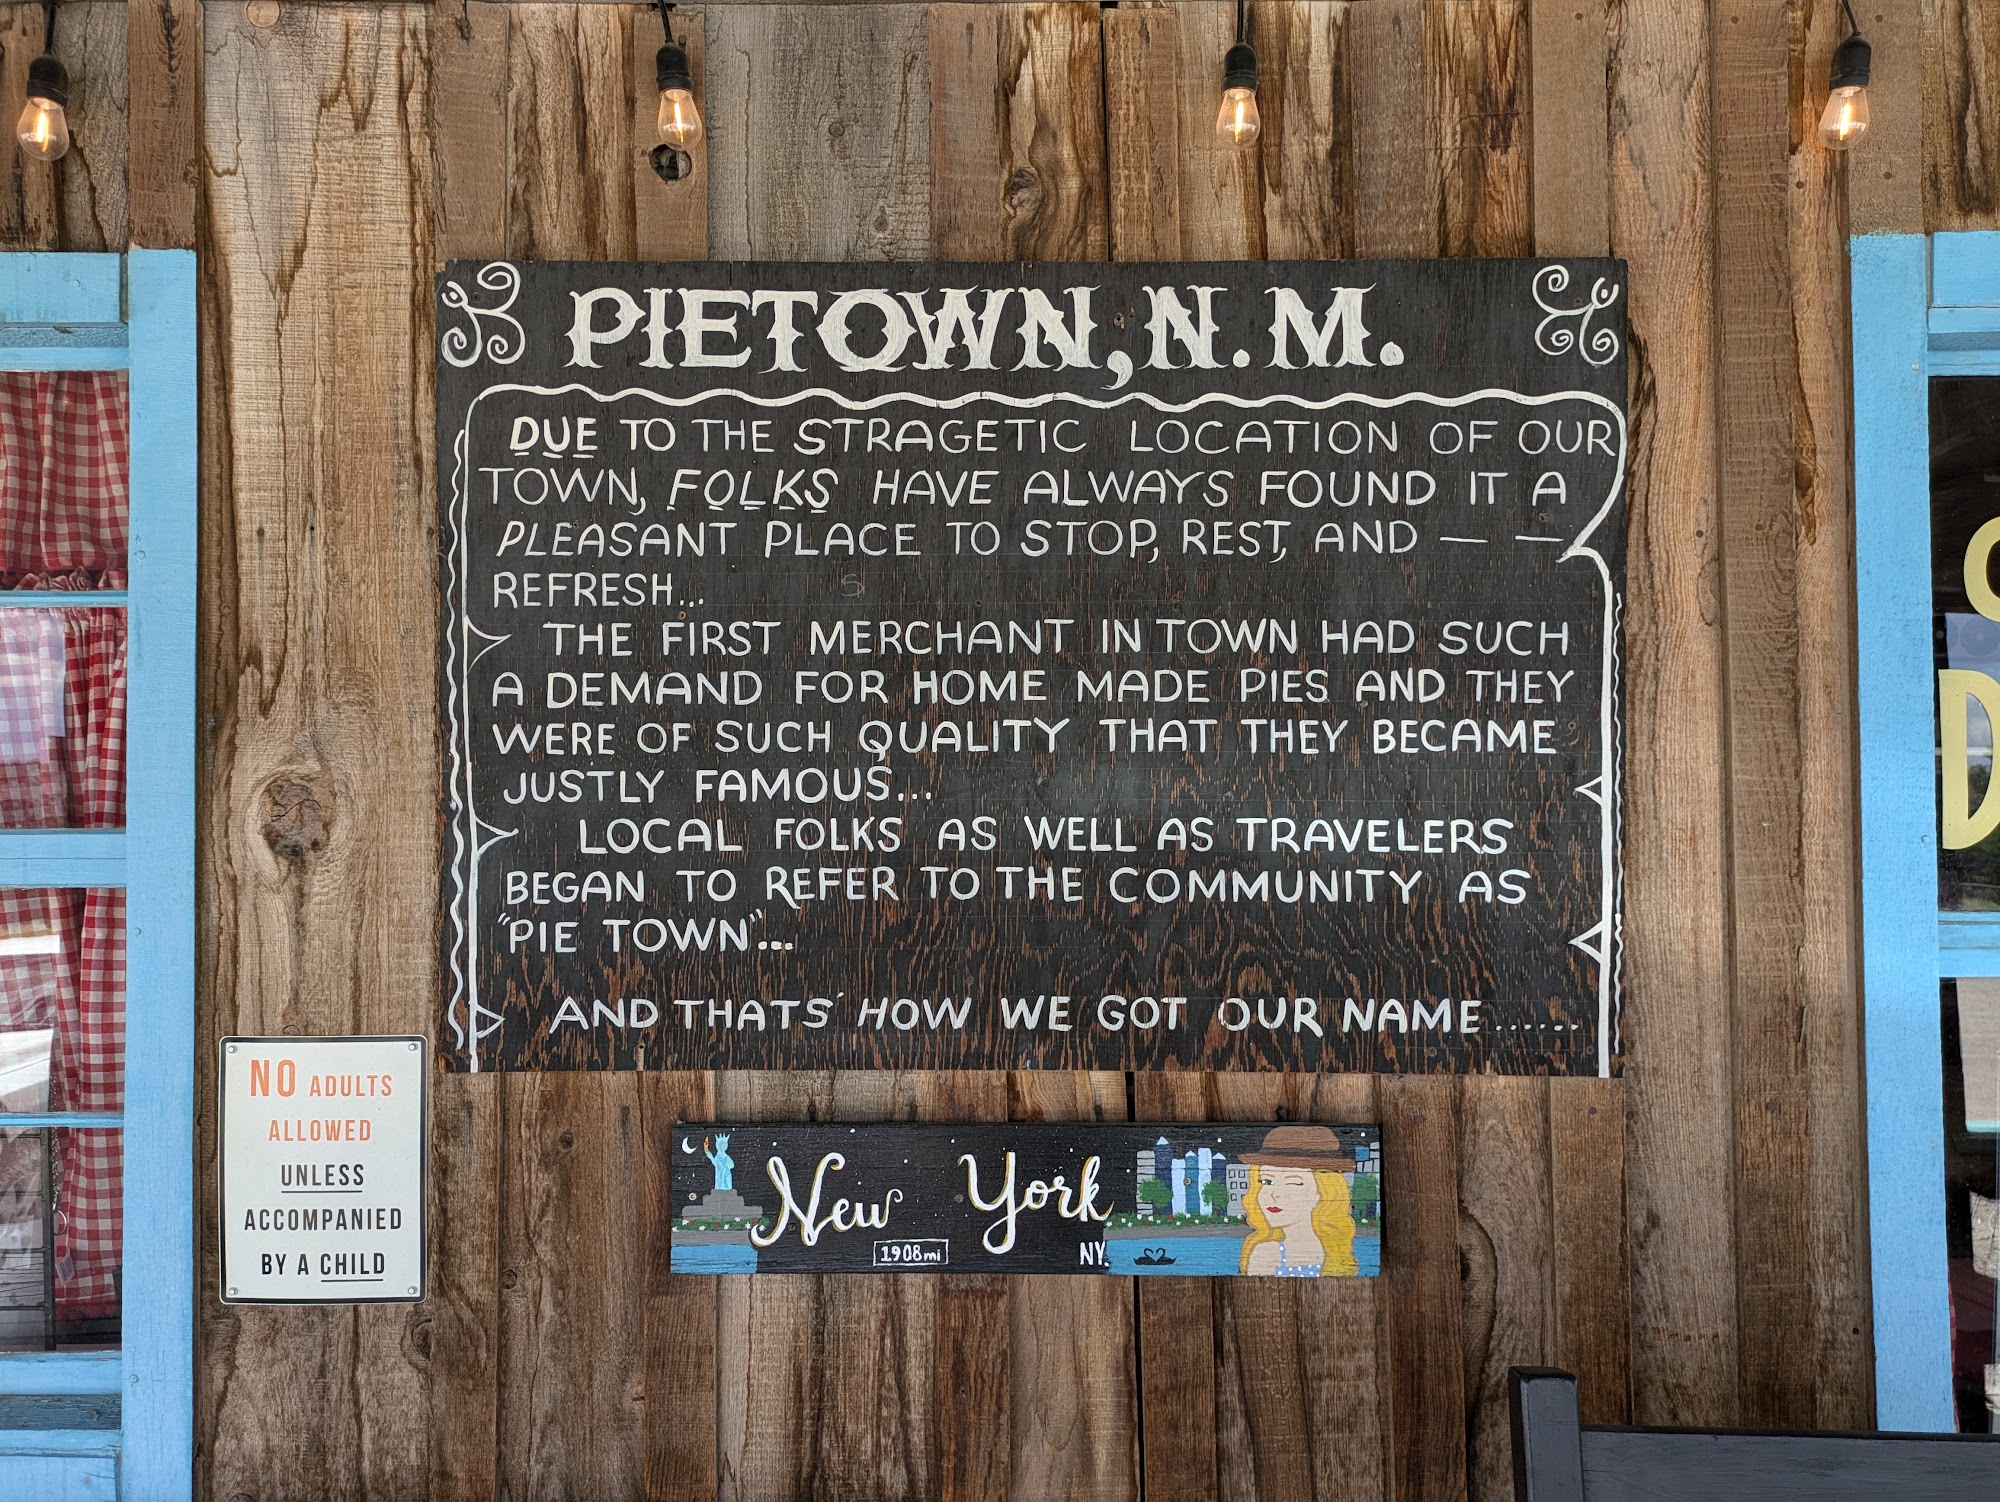 PIETOWN, N.M.
DUE TO THE STRAGETIC LOCATION OF OUR
TOWN, FOLKS HAVE ALWAYS FOUND IT A
PLEASANT PLACE TO STOP, REST, AND — —
REFRESH...
THE FIRST MERCHANT IN TOWN HAD SUCH
A DEMAND FOR HOME MADE PIES AND THEY
WERE OF SUCH QUALITY THAT THEY BECAME
JUSTLY FAMOUS...
LOCAL FOLKS AS WELL AS TRAVELERS
BEGAN TO REFER TO THE COMMUNITY AS
"PIE TOWN"...
AND THATS' HOW WE GOT OUR NAME......
NO ADULTS
ALLOWED
UNLESS
ACCOMPANIED
BY A CHILD
New York
1908mi NY.